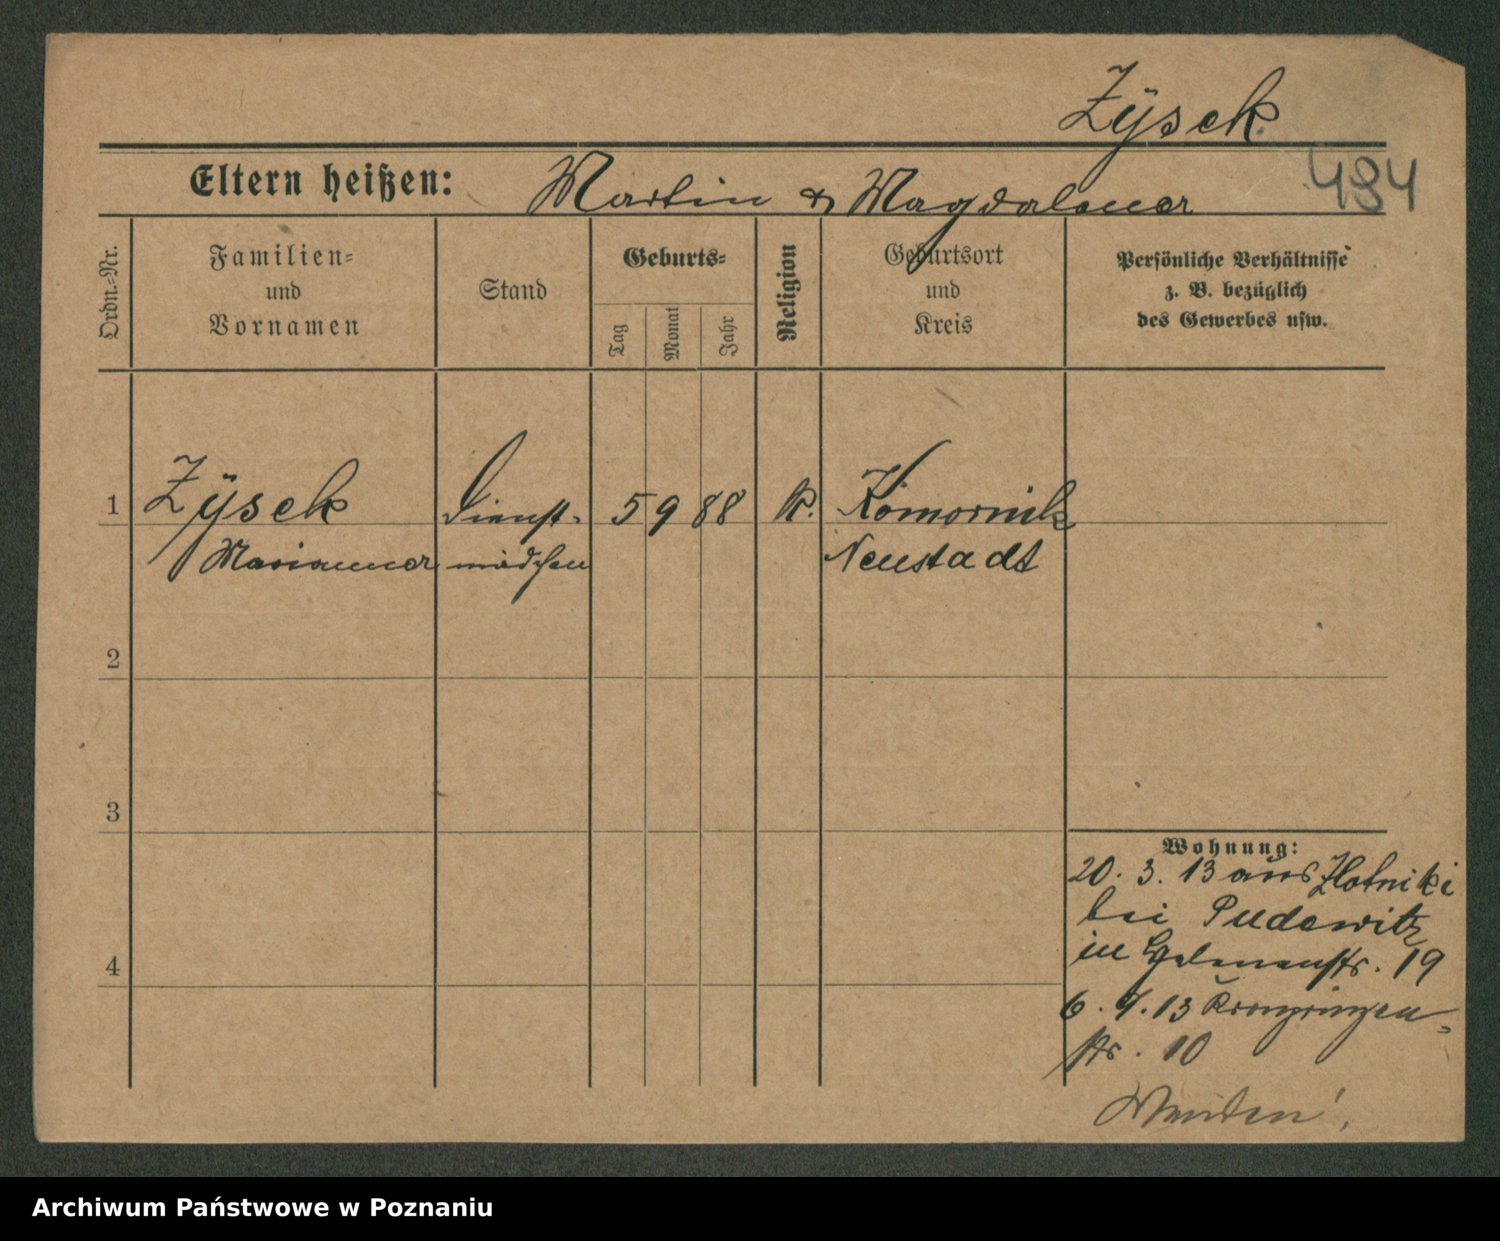 Zÿsek
Eltern heißen: Martin & Magdalena
494
Ordn.-Nr.
Familien-
und
Vornamen
Stand
Geburts-
Tag
Monat
Jahr
Religion
Geburtsort
und
Kreis
Persönliche Verhältnisse
z. B. bezüglich
des Gewerbes usw.
1 Zÿsek Dienst- 5 9 88 K. Komornik
Marianna mädchen Neustadt
2
3
4
Wohnung:
20. 3. 13 aus Zlotniki
bei Pudewitz
in Helenenstr. 19
6. 9. 13 Kronprinzen-
str. 10
Wenden!
Archiwum Państwowe w Poznaniu